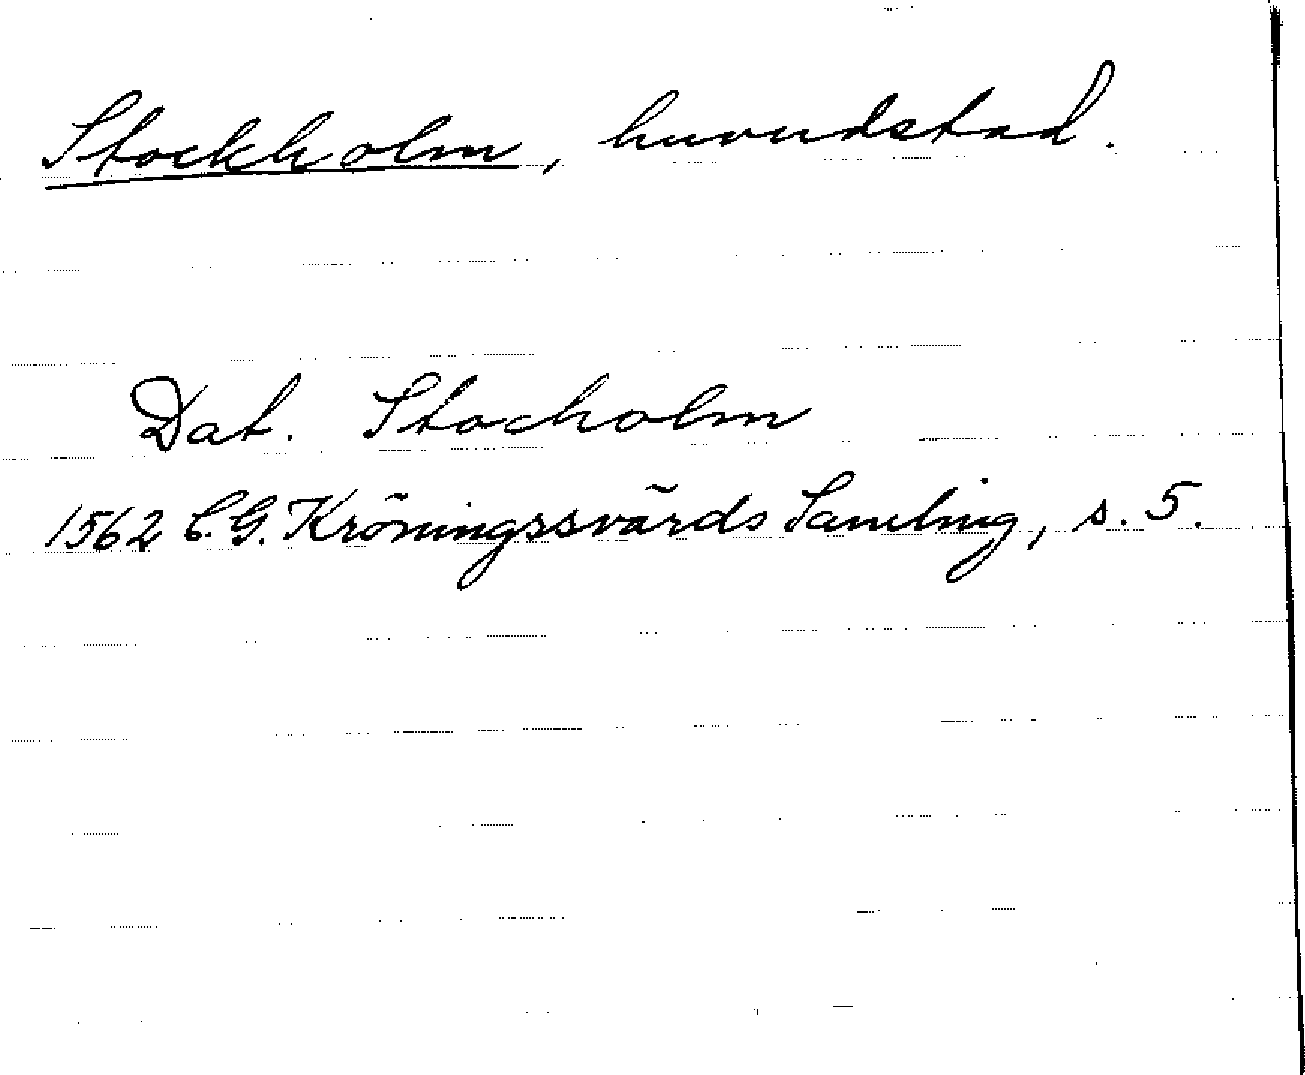 Stockholm, huvudstad.
Dat. Stocholm
1562 C.G. Kröningssvärds Samling, s. 5.